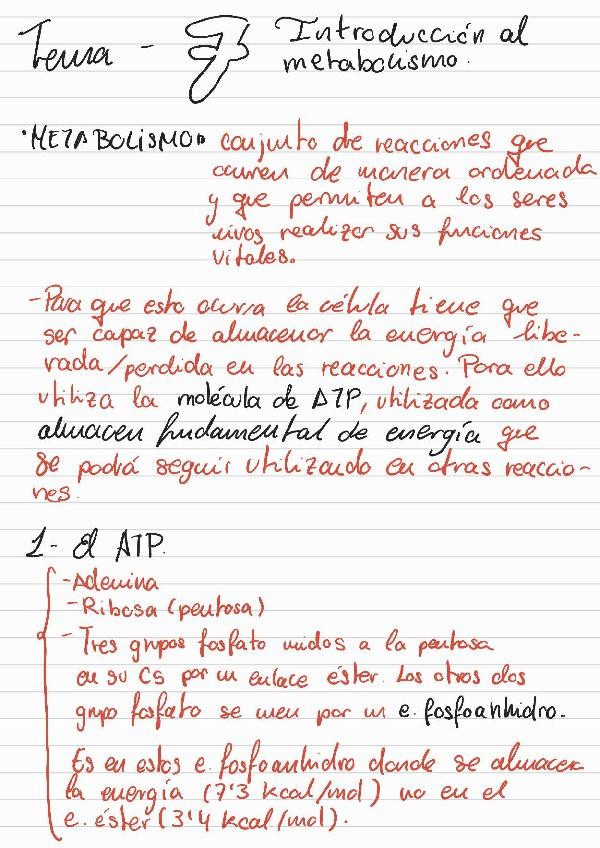 Tema - 7 Introducción al
metabolismo.
·METABOLISMO conjunto de reacciones que
ocurren de manera ordenada
y que permiten a los seres
vivos realizar sus funciones
vitales.
-Para que esto ocurra la célula tiene que
ser capaz de almacenar la energía libe-
rada/perdida en las reacciones. Para ello
utiliza la molécula de ATP, utilizada como
almacen fundamental de energía que
se podrá seguir utilizando en otras reaccio-
nes.
1- El ATP.
-Adenina
-Ribosa (pentosa)
- Tres grupos fosfato unidos a la pentosa
en su C5 por un enlace éster. Los otros dos
grupo fosfato se unen por un e. fosfoanhidro.
Es en estos e. fosfoanhidro donde se almacen
la energía (7'3 kcal/mol) no en el
e. éster (3'4 kcal/mol).